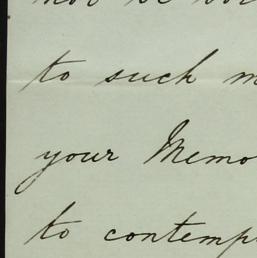 to such m
your Memo
to contemp